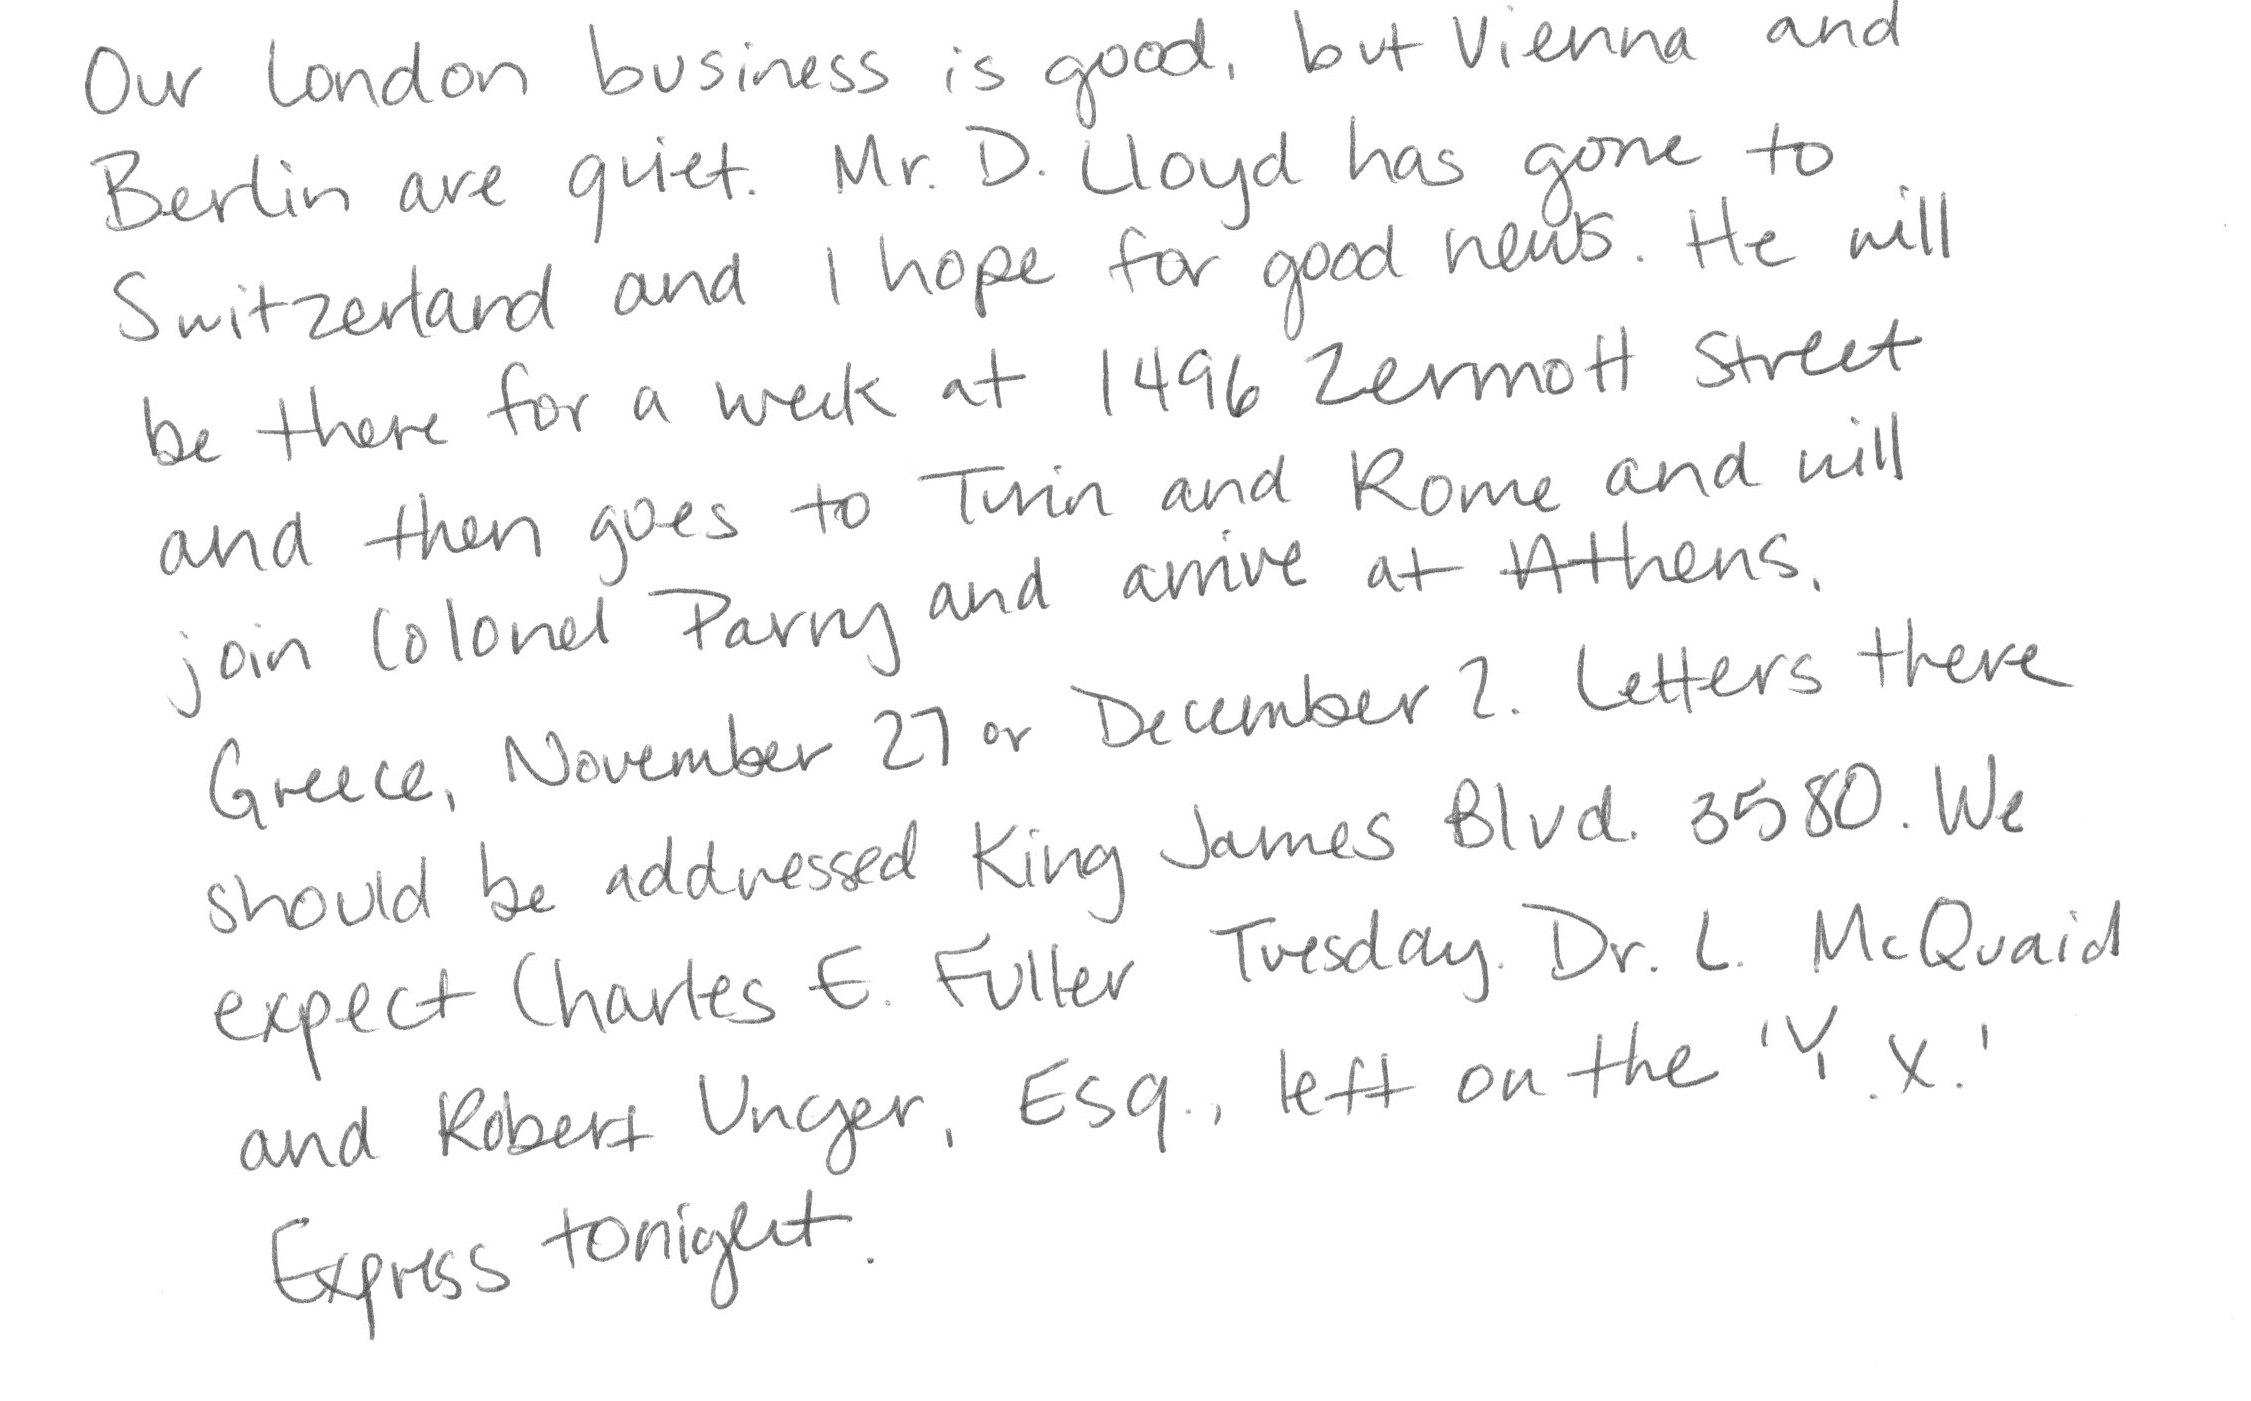 Our London business is good, but Vienna and
Berlin are quiet. Mr. D. Lloyd has gone to
Switzerland and I hope for good news. He will
be there for a week at 1496 Zermott Street
and then goes to Turin and Rome and will
join Colonel Parry and arrive at Athens,
Greece, November 27 or December 2. Letters there
should be addressed King James Blvd. 3580. We
expect Charles E. Fuller Tuesday. Dr. L. McQuaid
and Robert Unger, Esq., left on the 'Y.X.'
Express tonight.